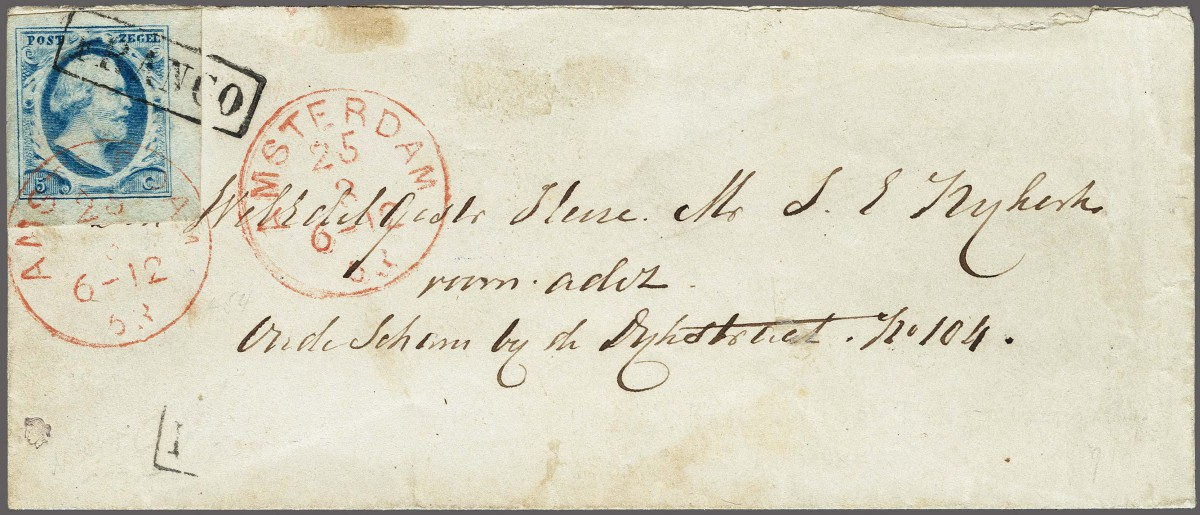 POST ZEGEL
FRANCO
5 C
AMSTERDAM
25
2
6-12
53
AMS DA
25
6-12
53
WelEdel Gestr Heer. Mr S. E Nykerk
room. adv.
Oude Schans by de Dykstraat. No 104.